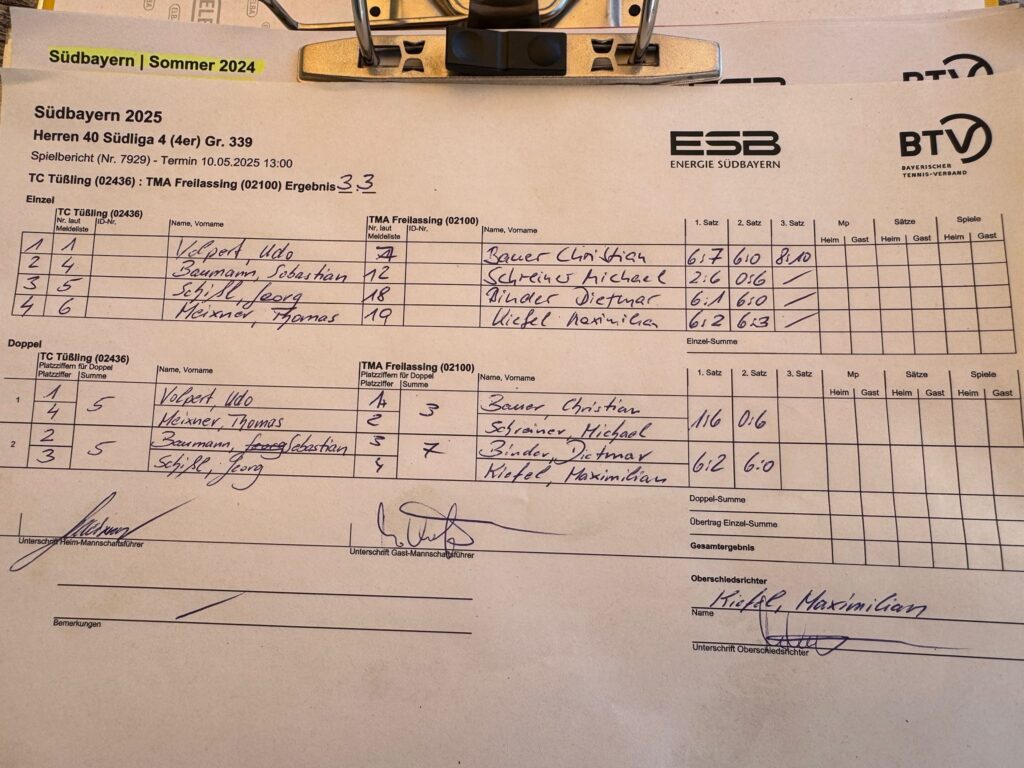 Südbayern | Sommer 2024
Südbayern 2025
Herren 40 Südliga 4 (4er) Gr. 339
Spielbericht (Nr. 7929) - Termin 10.05.2025 13:00
TC Tüßling (02436) : TMA Freilassing (02100) Ergebnis 3:3
ESB
ENERGIE SÜDBAYERN
BTV
BAYERISCHER
TENNIS-VERBAND
Einzel
TC Tüßling (02436) TMA Freilassing (02100)
Nr. laut Meldeliste ID-Nr. Name, Vorname Nr. laut Meldeliste ID-Nr. Name, Vorname 1. Satz 2. Satz 3. Satz Mp Sätze Spiele
Heim Gast Heim Gast Heim Gast
1 1 Volpert, Udo 7 Bauer Christian 6:7 6:0 8:10
2 4 Baumann, Sebastian 12 Schreiner Michael 2:6 0:6 /
3 5 Schißl, Georg 18 Binder Dietmar 6:1 6:0 /
4 6 Meixner, Thomas 19 Kiefel Maximilian 6:2 6:3 /
Einzel-Summe
Doppel
TC Tüßling (02436) TMA Freilassing (02100)
Platzziffern für Doppel Platzziffer Summe Name, Vorname Platzziffern für Doppel Platzziffer Summe Name, Vorname 1. Satz 2. Satz 3. Satz Mp Sätze Spiele
Heim Gast Heim Gast Heim Gast
1 1 5 Volpert, Udo 1 3 Bauer, Christian 1:6 0:6
4 Meixner, Thomas 2 Schreiner, Michael
2 2 5 Baumann, Sebastian 3 7 Binder, Dietmar 6:2 6:0
3 Schißl, Georg 4 Kiefel, Maximilian
Doppel-Summe
Übertrag Einzel-Summe
Gesamtergebnis
Unterschrift Heim-Mannschaftsführer
Unterschrift Gast-Mannschaftsführer
Oberschiedsrichter
Kiefel, Maximilian
Name
Unterschrift Oberschiedsrichter
Bemerkungen